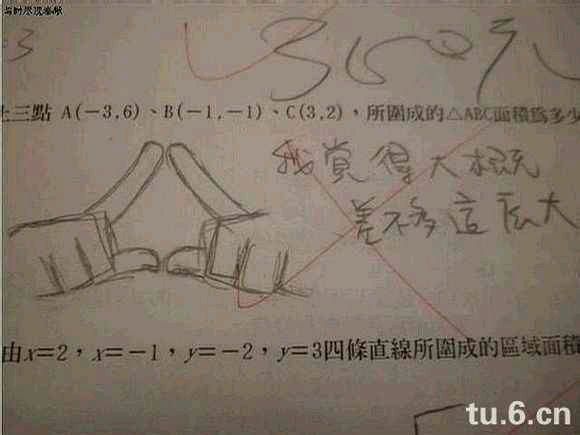 3
360元
上三點 A(-3,6)、B(-1,-1)、C(3,2)，所圍成的△ABC面積為多少
我覺得大概
差不多這麼大
由x=2，x=-1，y=-2，y=3四條直線所圍成的區域面積
tu.6.cn